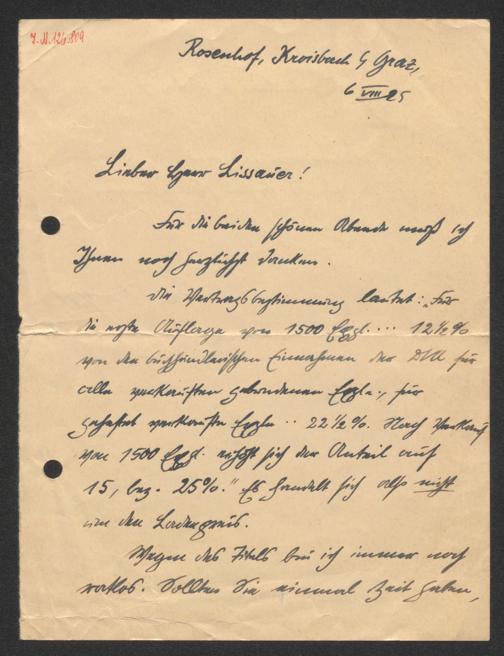 I.N. 124.809
Rosenhof, Kroisbach b/ Graz,
6 VIII 25
Lieber Herr Lissauer!
Für die beiden schönen Abende muß ich
Ihnen noch herzlichst danken.
Die Vertragsbestimmung lautet: „Für
die erste Auflage von 1500 Expl. ... 12 1/2 %
von den buchhändlerischen Einnahmen der DVA für
alle verkauften gebundenen Exple., für
geheftet verkaufte Exple .. 22 1/2 %. Nach Verkauf
von 1500 Expl. erhöht sich der Anteil auf
15, bez. 25%." Es handelt sich also nicht
um den Ladenpreis.
Wegen des Titels bin ich immer noch
ratlos. Sollten Sie einmal Zeit haben,